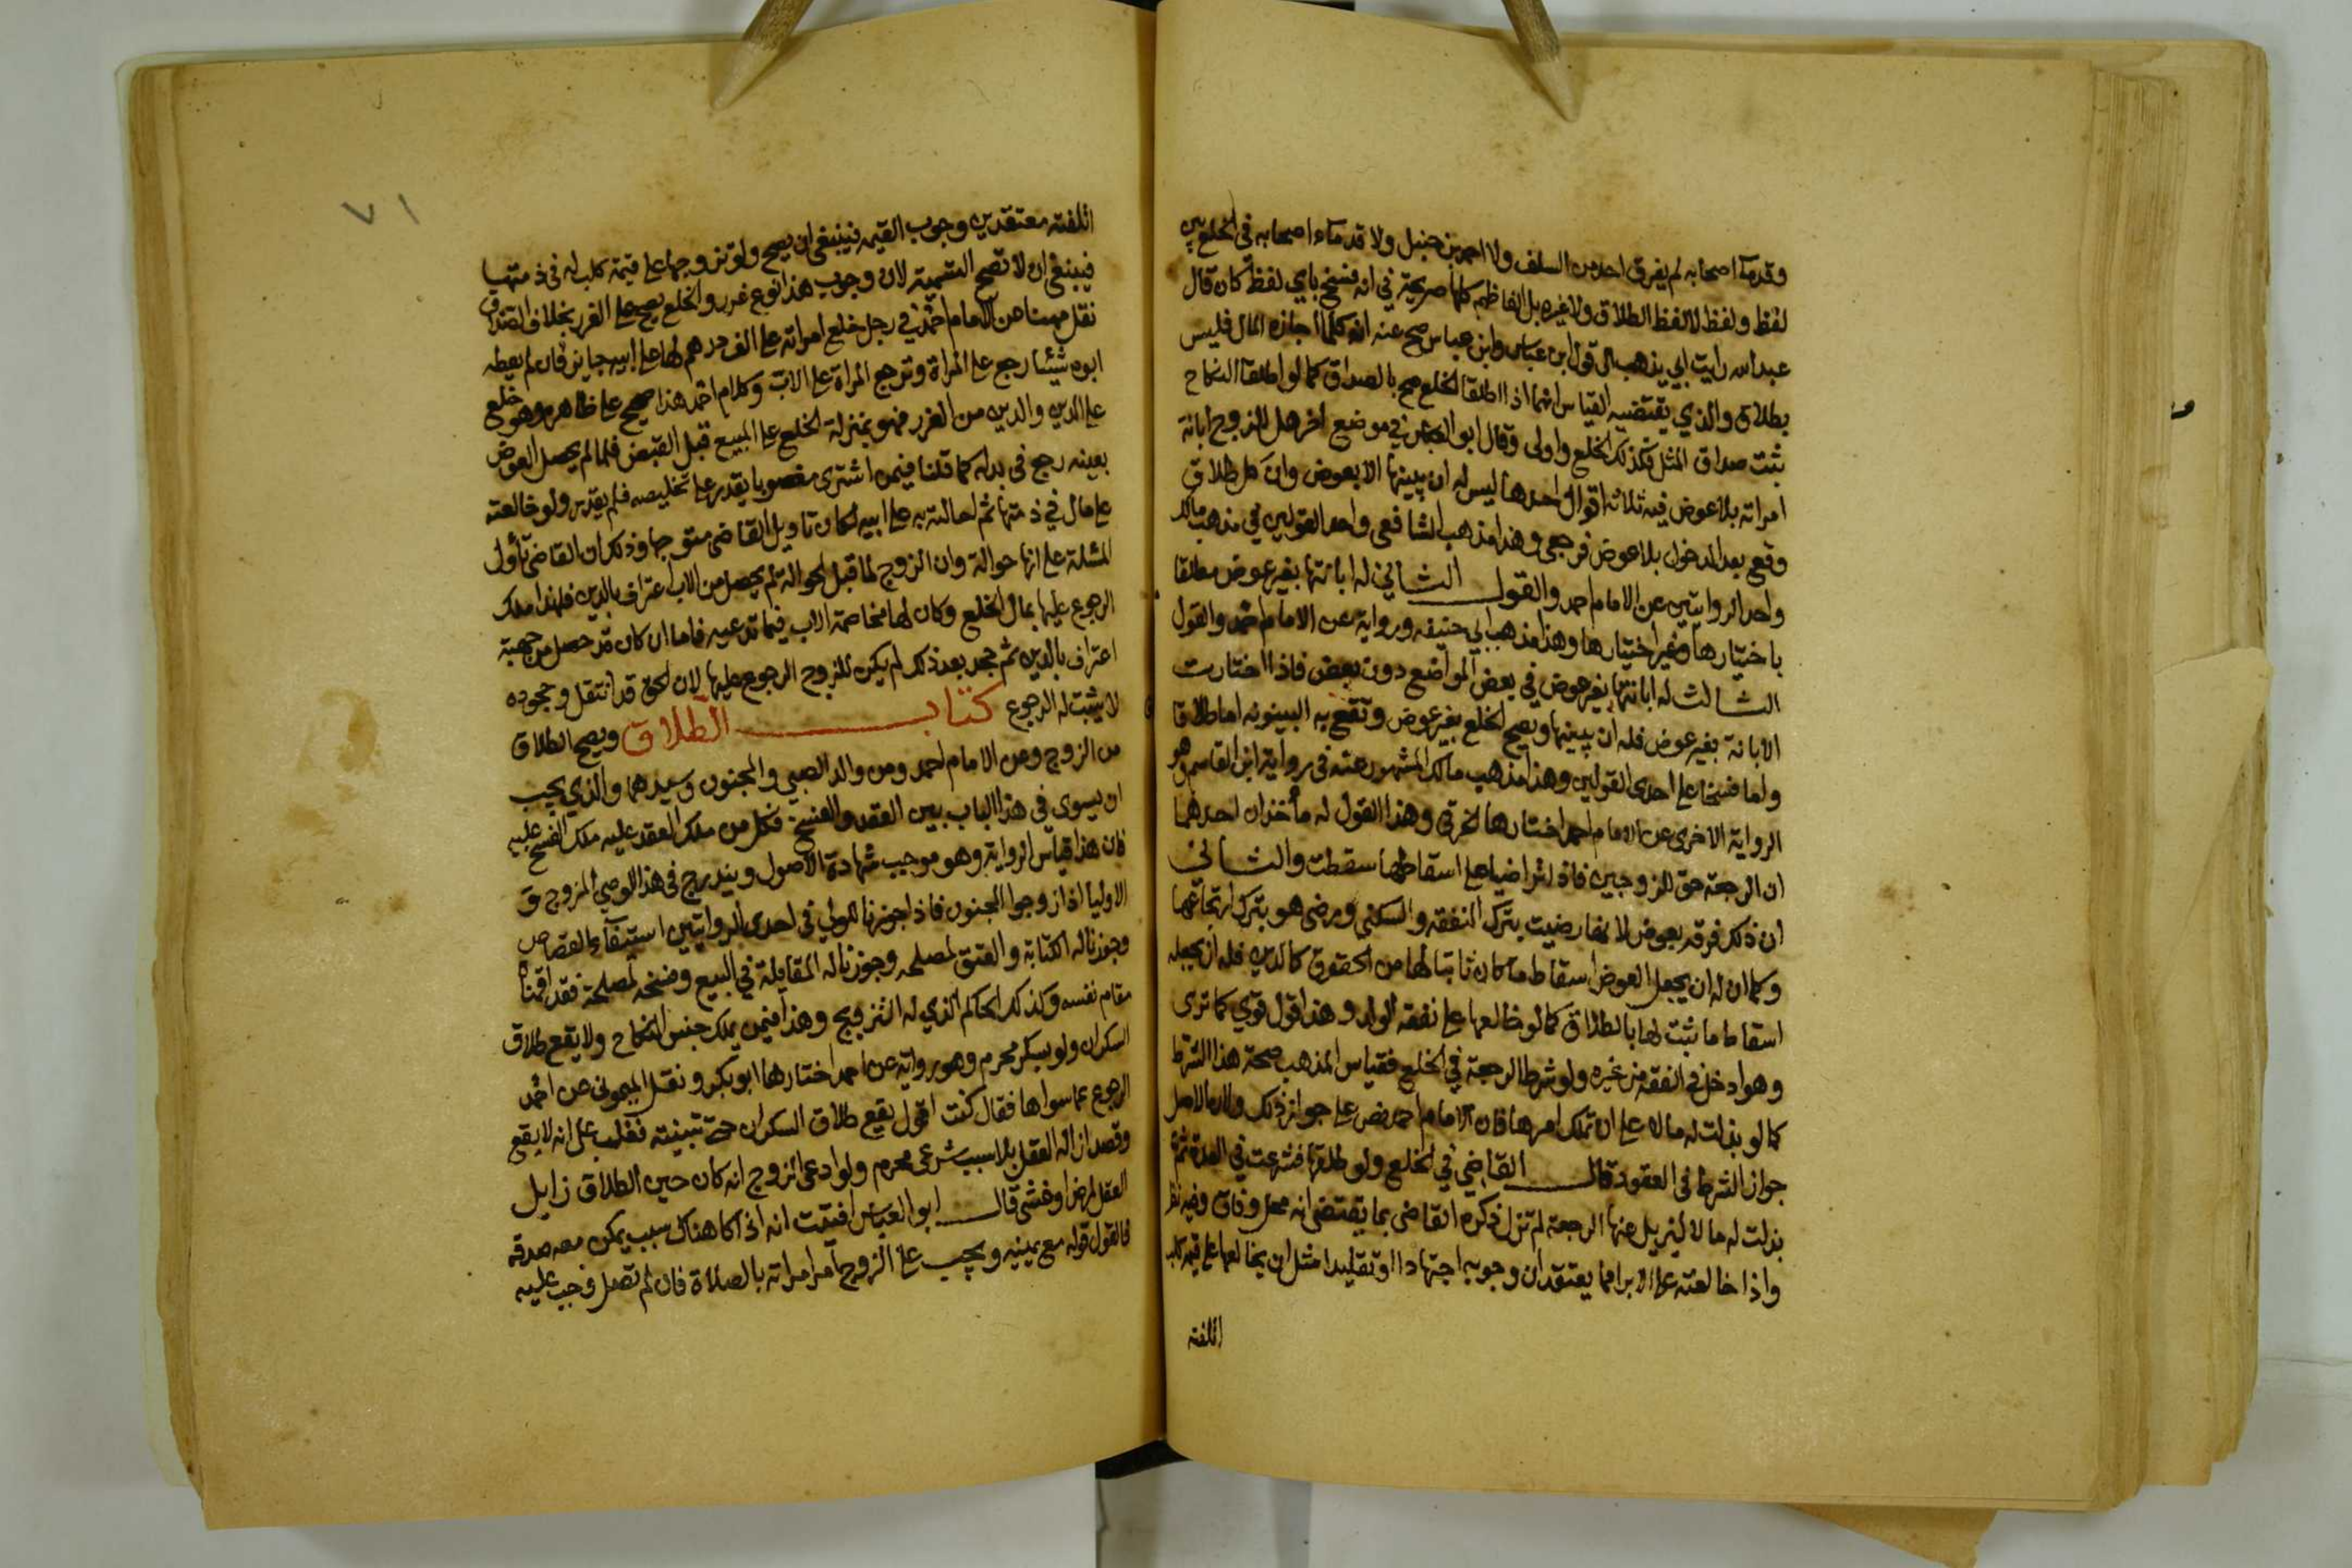 وقدماء اصحابه لم يفرق احد من السلف ولا احمد بن حنبل ولا قدماء اصحابه في الخلع بين
لفظ ولفظ لا لفظ الطلاق ولا غيره بل الفاظهم كلها صريحة في انه فسخ باي لفظ كان قال
عبد الله رايت ابي يذهب الى قول ابن عباس وابن عباس صح عنه انه كلما اجازه المال فليس
بطلاق والذي يقتضيه القياس انهما اذا اطلقا الخلع صح بالصداق كما لو اطلقا النكاح
ثبت صداق المثل فكذلك الخلع واولى وقال ابو العباس في موضع اخر هل للزوج ابانة
امراته بلا عوض فيه ثلاثة اقوال احدها ليس له ان يبينها الا بعوض وان كل طلاق
وقع بعد الدخول بلا عوض فرجعي وهذا مذهب الشافعي واحد القولين في مذهب مالك
واحد الروايتين عن الامام احمد والقول الثاني له ابانتها بغير عوض مطلقا
باختيارها وغير اختيارها وهذا مذهب ابي حنيفه ورواية عن الامام احمد والقول
الثالث له ابانتها بغير عوض في بعض المواضع دون بعض فاذا اختارت
الابانة بغير عوض فله ان يبينها ويصح الخلع بغير عوض وتقع به البينونه اما طلاقا
واما فسخا على احدى القولين وهذا مذهب مالك المشهور عنه في رواية ابن القاسم وهو
الرواية الاخرى عن الامام احمد اختارها الخرقي وهذا القول له مأخذان احدهما
ان الرجعة حق للزوجين فاذا تراضيا على اسقاطها سقطت والثاني
ان ذلك فرقه بعوض لانها رضيت بترك النفقه والسكنى ورضي هو بترك ارتجاعها
وكما ان له ان يجعل العوض اسقاط ما كان ثابتا لها من الحقوق كالدين فله ان يجعله
اسقاط ما ثبت لها بالطلاق كما لو خالعها على نفقه الولد وهذا قول قوي كما ترى
وهو ادخل في الفقه من غيره ولو شرط الرجعة في الخلع فقياس المذهب صحة هذا الشرط
كما لو بذلت له مالا على ان تملك امرها فان الامام احمد نص على جواز ذلك ولان الاصل
جواز الشرط في العقود قال القاضي في الخلع ولو طلقها فشرعت في العدة ثم
بذلت له مالا ليزيل عنها الرجعة لم تزل ذكره القاضي بما يقتضي انه محل وفاق وفيه نظر
واذا خالعته على الابراء مما يعتقدان وجوبه اجتهادا او تقليدا مثل ان يخالعها على قيمه كلب
اتلفته
٧١
اتلفته معتقدين وجوب القيمه فينبغي ان يصح ولو تزوجها على قيمة كلب له في ذمتها
فينبغي ان لا تصح التسمية لان وجوب هذا نوع غرر والخلع يصح على الغرر بخلاف الصداق
نقل مهنا عن الامام احمد في رجل خلع امراته على الف درهم لها على ابيه جايز فان لم يعطه
ابوه شيئا رجع على المراة وترجع المراة على الاب وكلام احمد هذا صحيح على ظاهره وهو خلع
على الدين والدين من الغرر فهو بمنزلة الخلع على المبيع قبل القبض فلما لم يحصل العوض
بعينه رجع في بدله كما قلنا فيمن اشترى مغصوبا يقدر على تخليصه فلم يقدر ولو خالعته
على مال في ذمتها ثم احالته به على ابيه لكان تاويل القاضي متوجها وذكر ان القاضي تأول
المسئلة على انها حوالة وان الزوج لما قبل الحوالة لم يحصل من الاب اعتراف بالدين فلهذا ملك
الرجوع عليها بمال الخلع وكان لها مخاصمة الاب فيما تدعيه فاما ان كان قد حصل من جهته
اعتراف بالدين ثم جحد بعد ذلك لم يكن للزوج الرجوع عليها لان الحق قد انتقل وجحوده
لا يثبت له الرجوع كتاب الطلاق ويصح الطلاق
من الزوج وعن الامام احمد ومن والد الصبي والمجنون وسيدهما والذي يجب
ان يسوى في هذا الباب بين العقد والفسخ فكل من ملك العقد عليه ملك الفسخ عليه
فان هذا قياس الرواية وهو موجب شهادة الاصول ويندرج في هذا الوصي المزوج و
الاوليا اذا زوجوا المجنون فاذا جوزنا للولي في احدى الروايتين استيفاء القصاص
وجوزنا له الكتابة والعتق لمصلحه وجوزنا له المقايلة في البيع وفسخه لمصلحة فقد اقمناه
مقام نفسه وكذلك الحاكم الذي له التزويج وهذا فيمن يملك جنس النكاح ولا يقع طلاق
السكران ولو بسكر محرم وهو رواية عن احمد اختارها ابو بكر ونقل الميموني عن احمد
الرجوع عما سواها فقال كنت اقول يقع طلاق السكران حتى تبينته فغلب علي انه لا يقع
وقصد ازاله العقل بلا سبب شرعي محرم ولو ادعى الزوج انه كان حين الطلاق زايل
العقل لمرض او غشي قال ابو العباس افتيت انه اذا كان هناك سبب يمكن معه صدقه
فالقول قوله مع يمينه ويجب على الزوج امر امراته بالصلاة فان لم تفعل وجب عليه